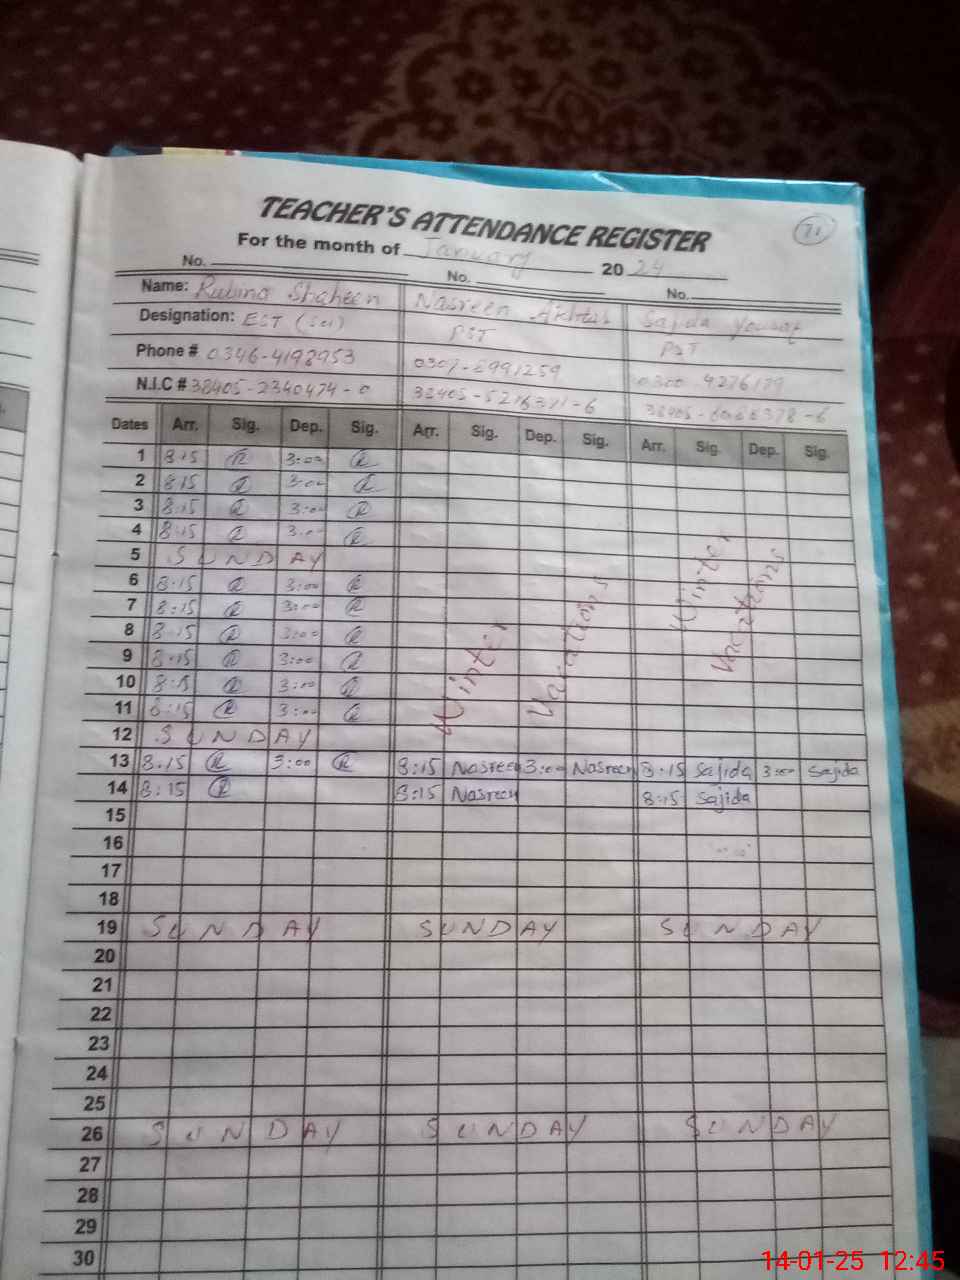 TEACHER'S ATTENDANCE REGISTER
71
For the month of January 20 24
No. No. No.
Name: Rubina Shaheen Nasreen Akhtar Sajida Yousaf
Designation: EST (Sci) PST PST
Phone # 0346-4198953 0307-6991259 0300 4276179
N.I.C # 38405-2340474-0 38405-5216371-6
Dates Arr. Sig. Dep. Sig. Arr. Sig. Dep. Sig. Arr. Sig. Dep. Sig.
1 8:15 R 3:00 R
2 8:15 R 3:00 R
3 8:15 R 3:00 R
4 8:15 R 3:00 R
5 SUNDAY
6 8:15 R 3:00 R
7 8:15 R 3:00 R
8 8:15 R 3:00 R
9 8:15 R 3:00 R
10 8:15 R 3:00 R
11 8:15 R 3:00 R
Winter Vacations Winter Vacations
12 SUNDAY
13 8:15 R 3:00 R 8:15 Nasreen 3:00 Nasreen 8:15 Sajida 3:00 Sajida
14 8:15 R 8:15 Nasreen 8:15 Sajida
15
16
17
18
19 SUNDAY SUNDAY SUNDAY
20
21
22
23
24
25
26 SUNDAY SUNDAY SUNDAY
27
28
29
30
14-01-25 12:45